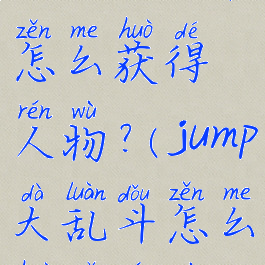 zěn me huò dé
怎么获得
rén wù
人物?(jump
dà luàn dǒu zěn me
大乱斗怎么